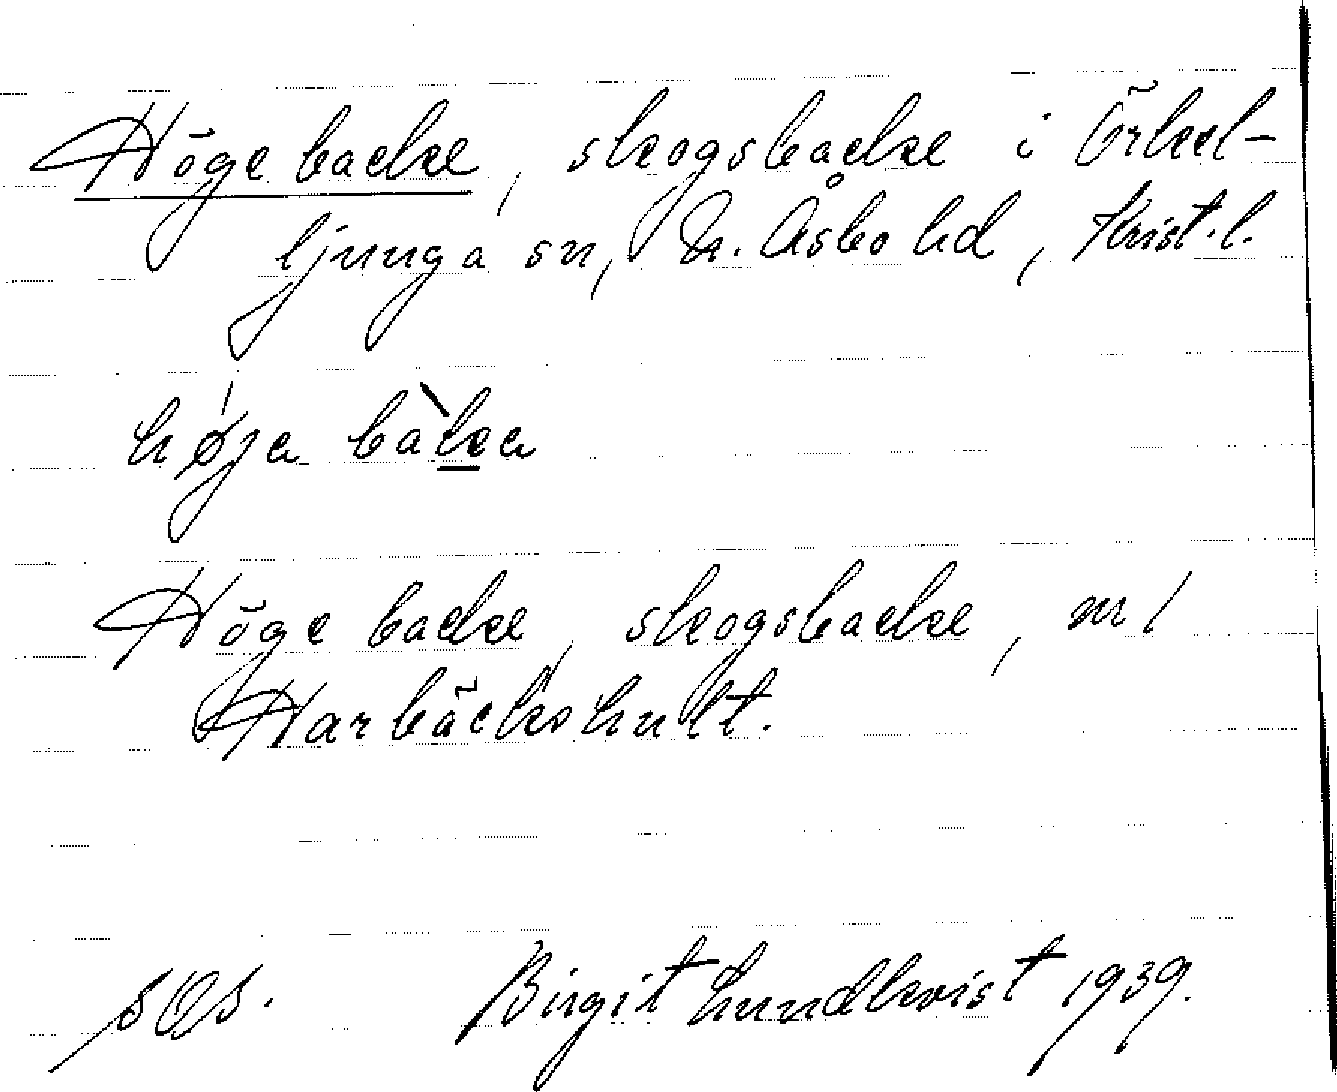 Höge backe, skogsbacke i Örkel-
ljunga sn, N. Åsbo hd, Krist. l.
høja bàka
Höge backe, skogsbacke, nr 1
Harbäckshult.
Birgit Lundkvist 1939.